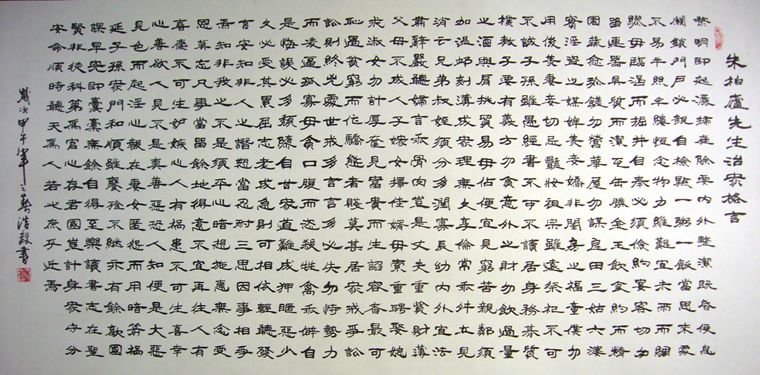 朱柏廬先生治家格言
黎明即起灑掃庭除要內外整潔既昏便息
關鎖門戶必親自檢點一粥一飯當思來處
不易半絲半縷恆念物力維艱宜未雨而綢
繆毋臨渴而掘井自奉必須儉約宴客切勿
留連器具質而潔瓦缶勝金玉飲食約而精
園蔬愈珍饈勿營華屋勿謀良田三姑六婆
實淫盜之媒婢美妾嬌非閨房之福童僕勿
用俊美妻妾切忌艷妝祖宗雖遠祭祀不可
不誠子孫雖愚經書不可不讀居身務期質
樸教子要有義方勿貪意外之財勿飲過量
之酒與肩挑貿易毋佔便宜見窮苦親鄰須
加溫恤刻薄成家理無久享倫常乖舛立見
消亡兄弟叔姪須分多潤寡長幼內外宜法
肅辭嚴聽婦言乖骨肉豈是丈夫重資財薄
父母不成人子嫁女擇佳婿毋索重聘娶媳
求淑女勿計厚奩見富貴而生諂容者最可
恥遇貧窮而作驕態者賤莫甚居家戒爭訟
訟則終凶處世戒多言言多必失勿恃勢力
而凌逼孤寡毋貪口腹而恣殺牲禽乖僻自
是悔誤必多頹惰自甘家道難成狎暱惡少
久必受其累屈志老成急則可相依輕聽發
言安知非人之譖愬當忍耐三思因事相爭
焉知非我之不是須平心暗想施惠無念受
恩莫忘凡事當留餘地得意不宜再往人有
喜慶不可生妒嫉心人有禍患不可生喜幸
心善欲人見不是真善惡恐人知便是大惡
見色而起淫心報在妻女匿怨而用暗箭禍
延子孫家門和順雖饔飧不繼亦有餘歡國
課早完即囊橐無餘自得至樂讀書志在聖
賢非徒科第為官心存君國豈計身家守分
安命順時聽天為人若此庶乎近焉
歲次甲午年之春浩毅書